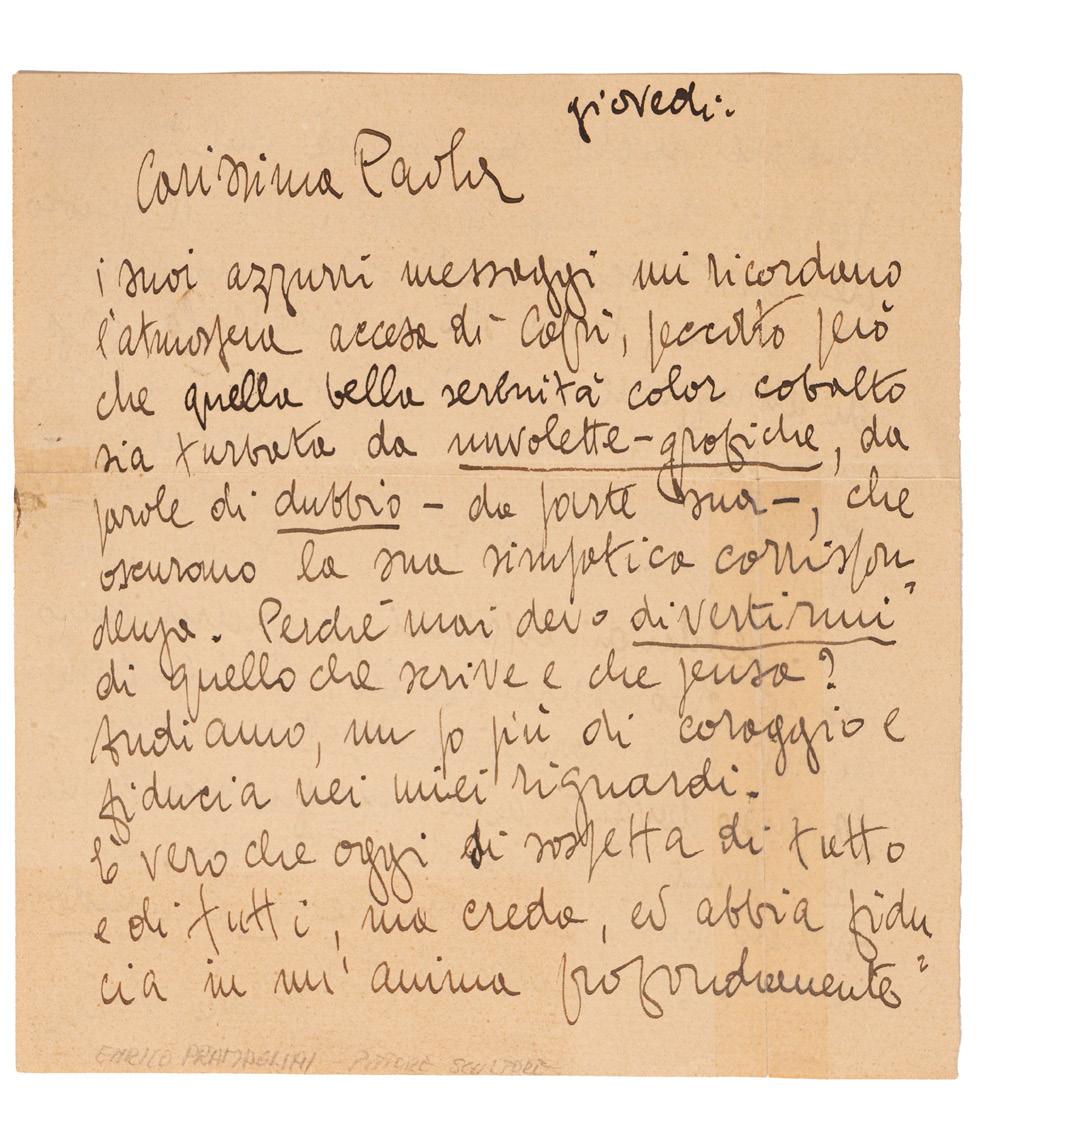 giovedi.
Carissima Paola
i suoi azzurri messaggi mi ricordano
l'atmosfera accesa di Capri, peccato però
che quella bella serenità color cobalto
sia turbata da nuvolette-grafiche, da
parole di dubbio - da parte sua -, che
oscurano la sua simpatica corrispon
denza. Perché mai devo divertirmi"
di quello che scrive e che pensa?
Andiamo, un po più di coraggio e
fiducia nei miei riguardi.
È vero che oggi si sospetta di tutto
e di tutti, ma creda, ed abbia fidu
cia in un'anima profondamente"
ENRICO PRAMPOLINI - PITTORE SCULTORE